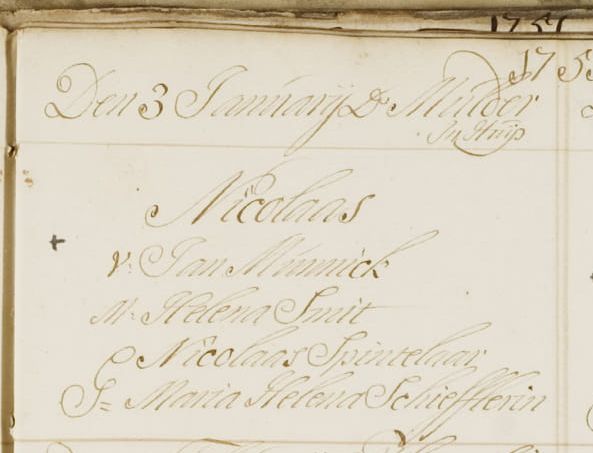 1757
175
Den 3 January Ds Mulder
In Huijs
Nicolaas
v: Jan Munnick
M: Helena Smit
P Nicolaas Spintelaar
G= Maria Helena Schiefflerin